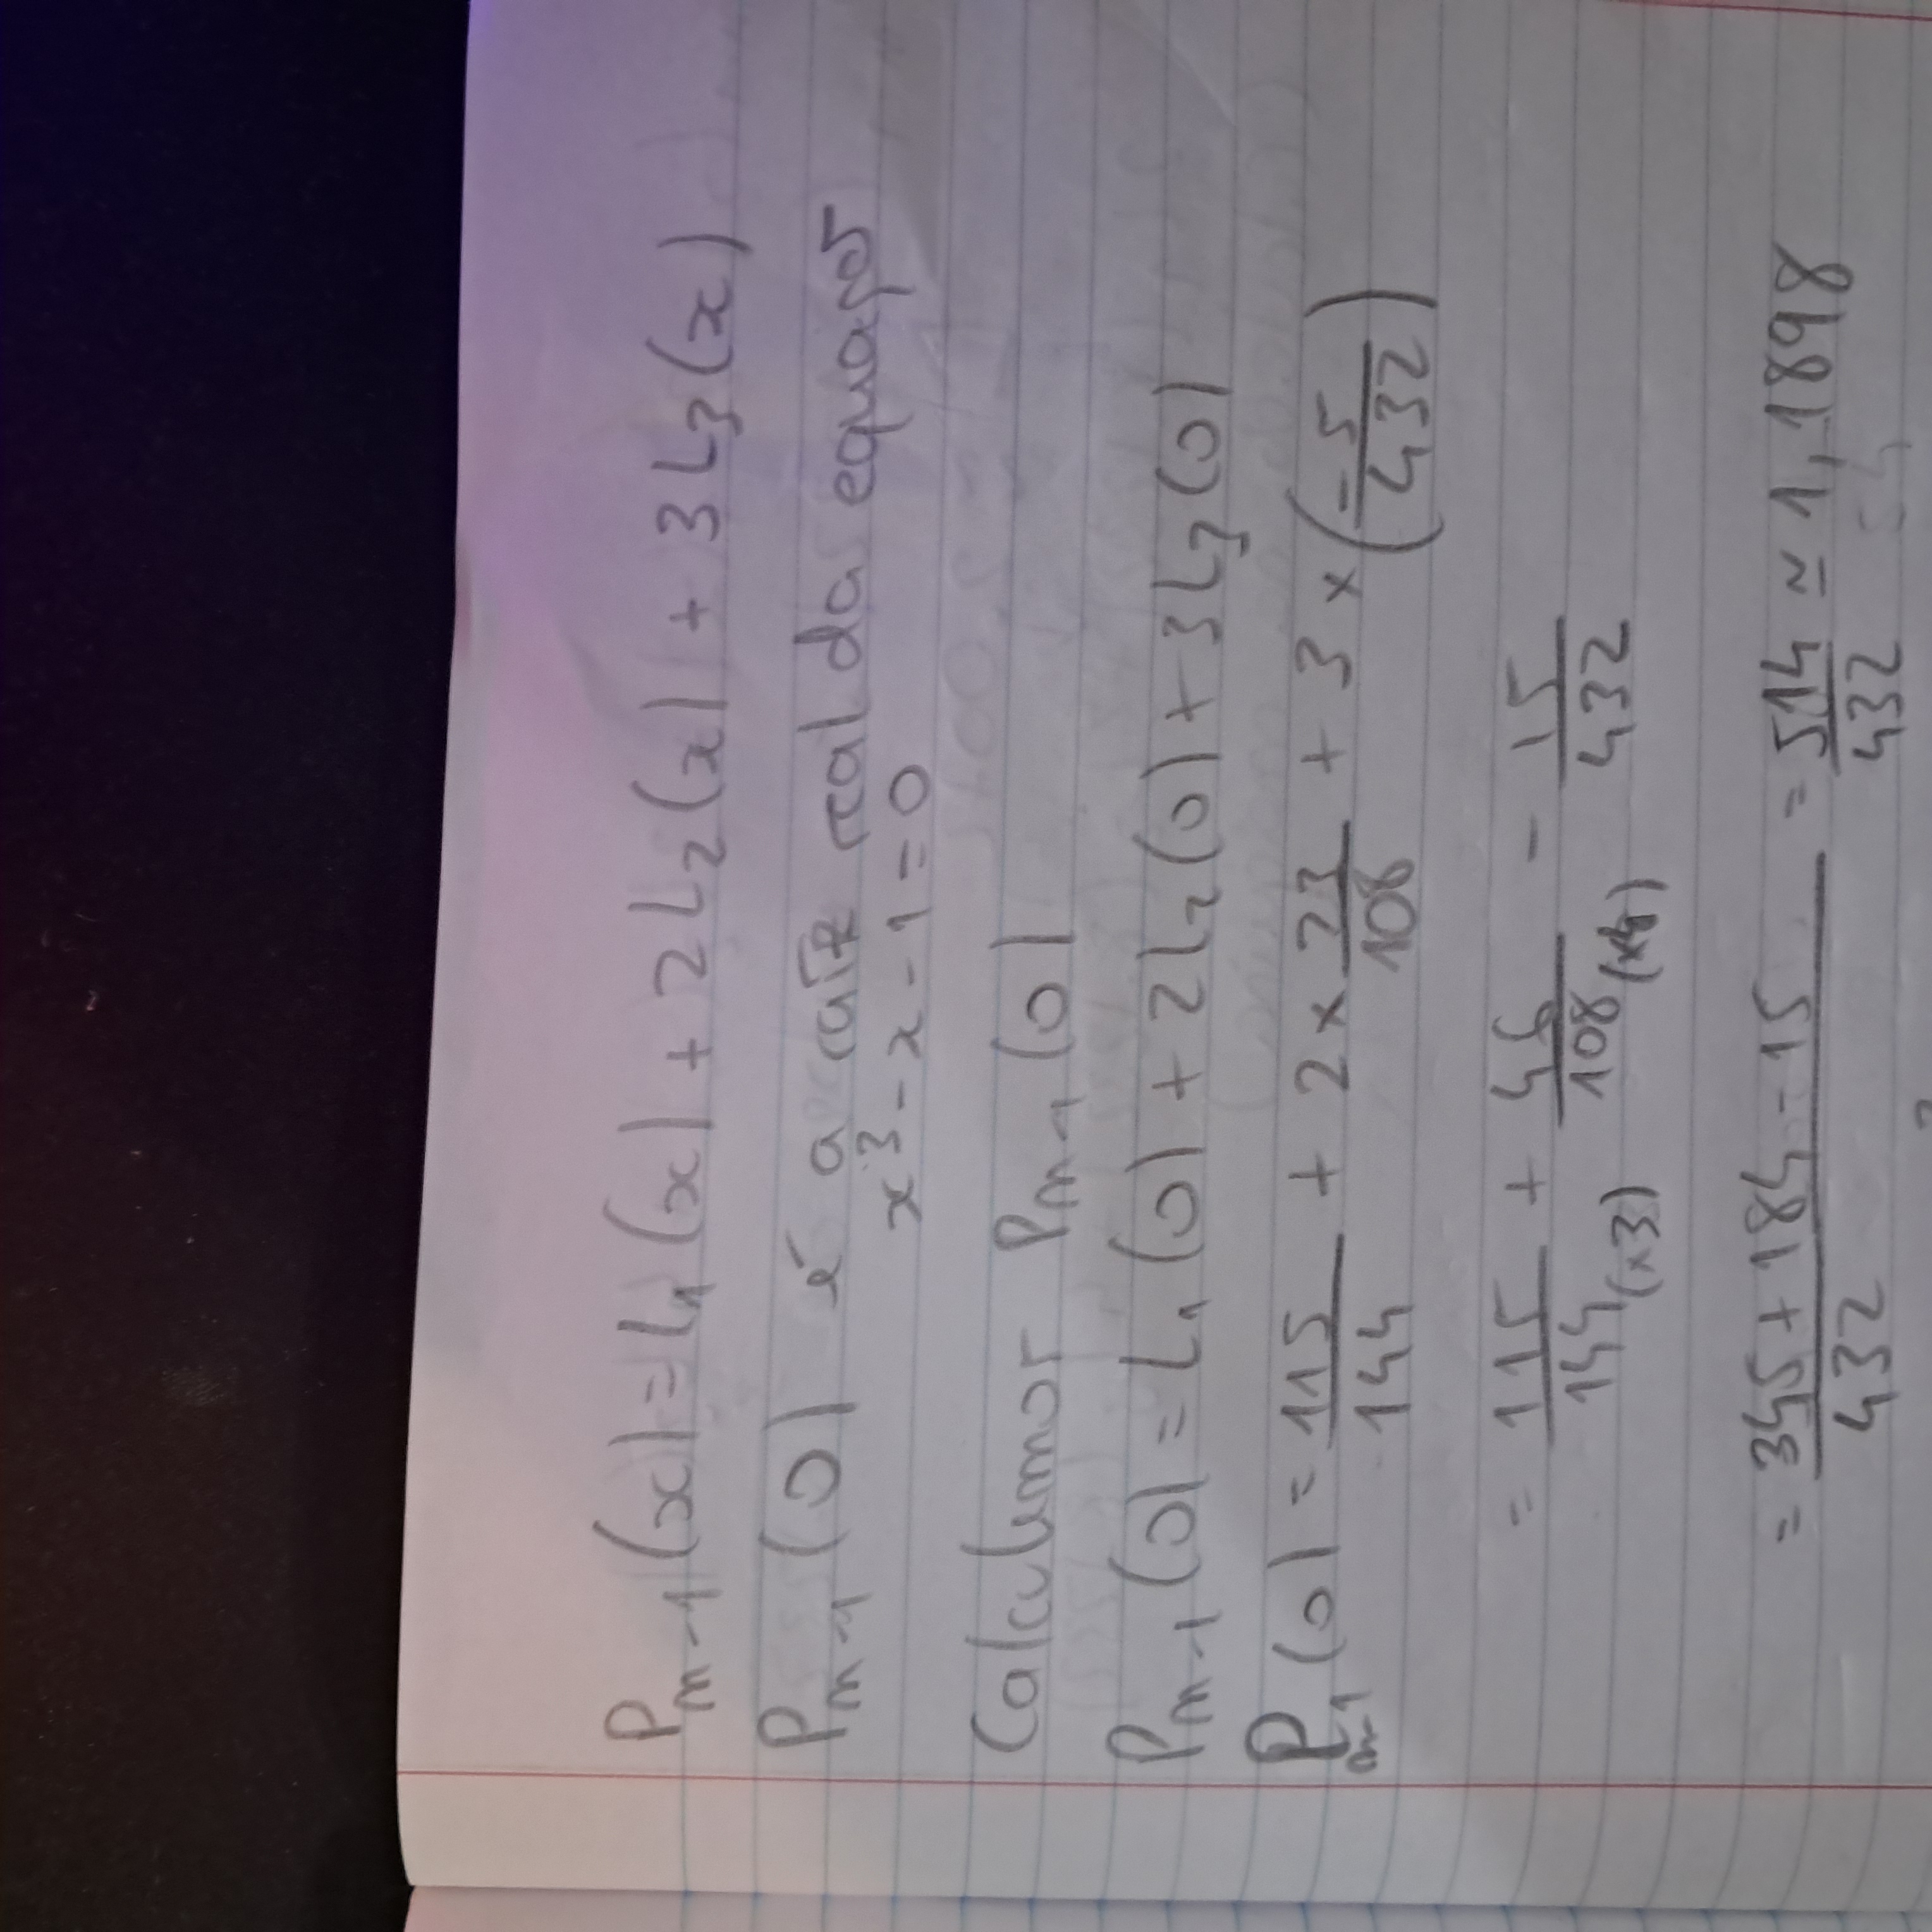 P_{m-1}(x) = L_1(x) + 2L_2(x) + 3L_3(x)
P_{m-1}(0) é a raiz real da equaçao
x^3 - x - 1 = 0
Calculemos P_{m-1}(0)
P_{m-1}(0) = L_1(0) + 2L_2(0) + 3L_3(0)
P_{m-1}(0) = 115/144 + 2 × 23/108 + 3 × (-5/432)
= 115/144 (×3) + 46/108 (×4) - 15/432
= (345 + 184 - 15)/432 = 514/432 ≃ 1,1898